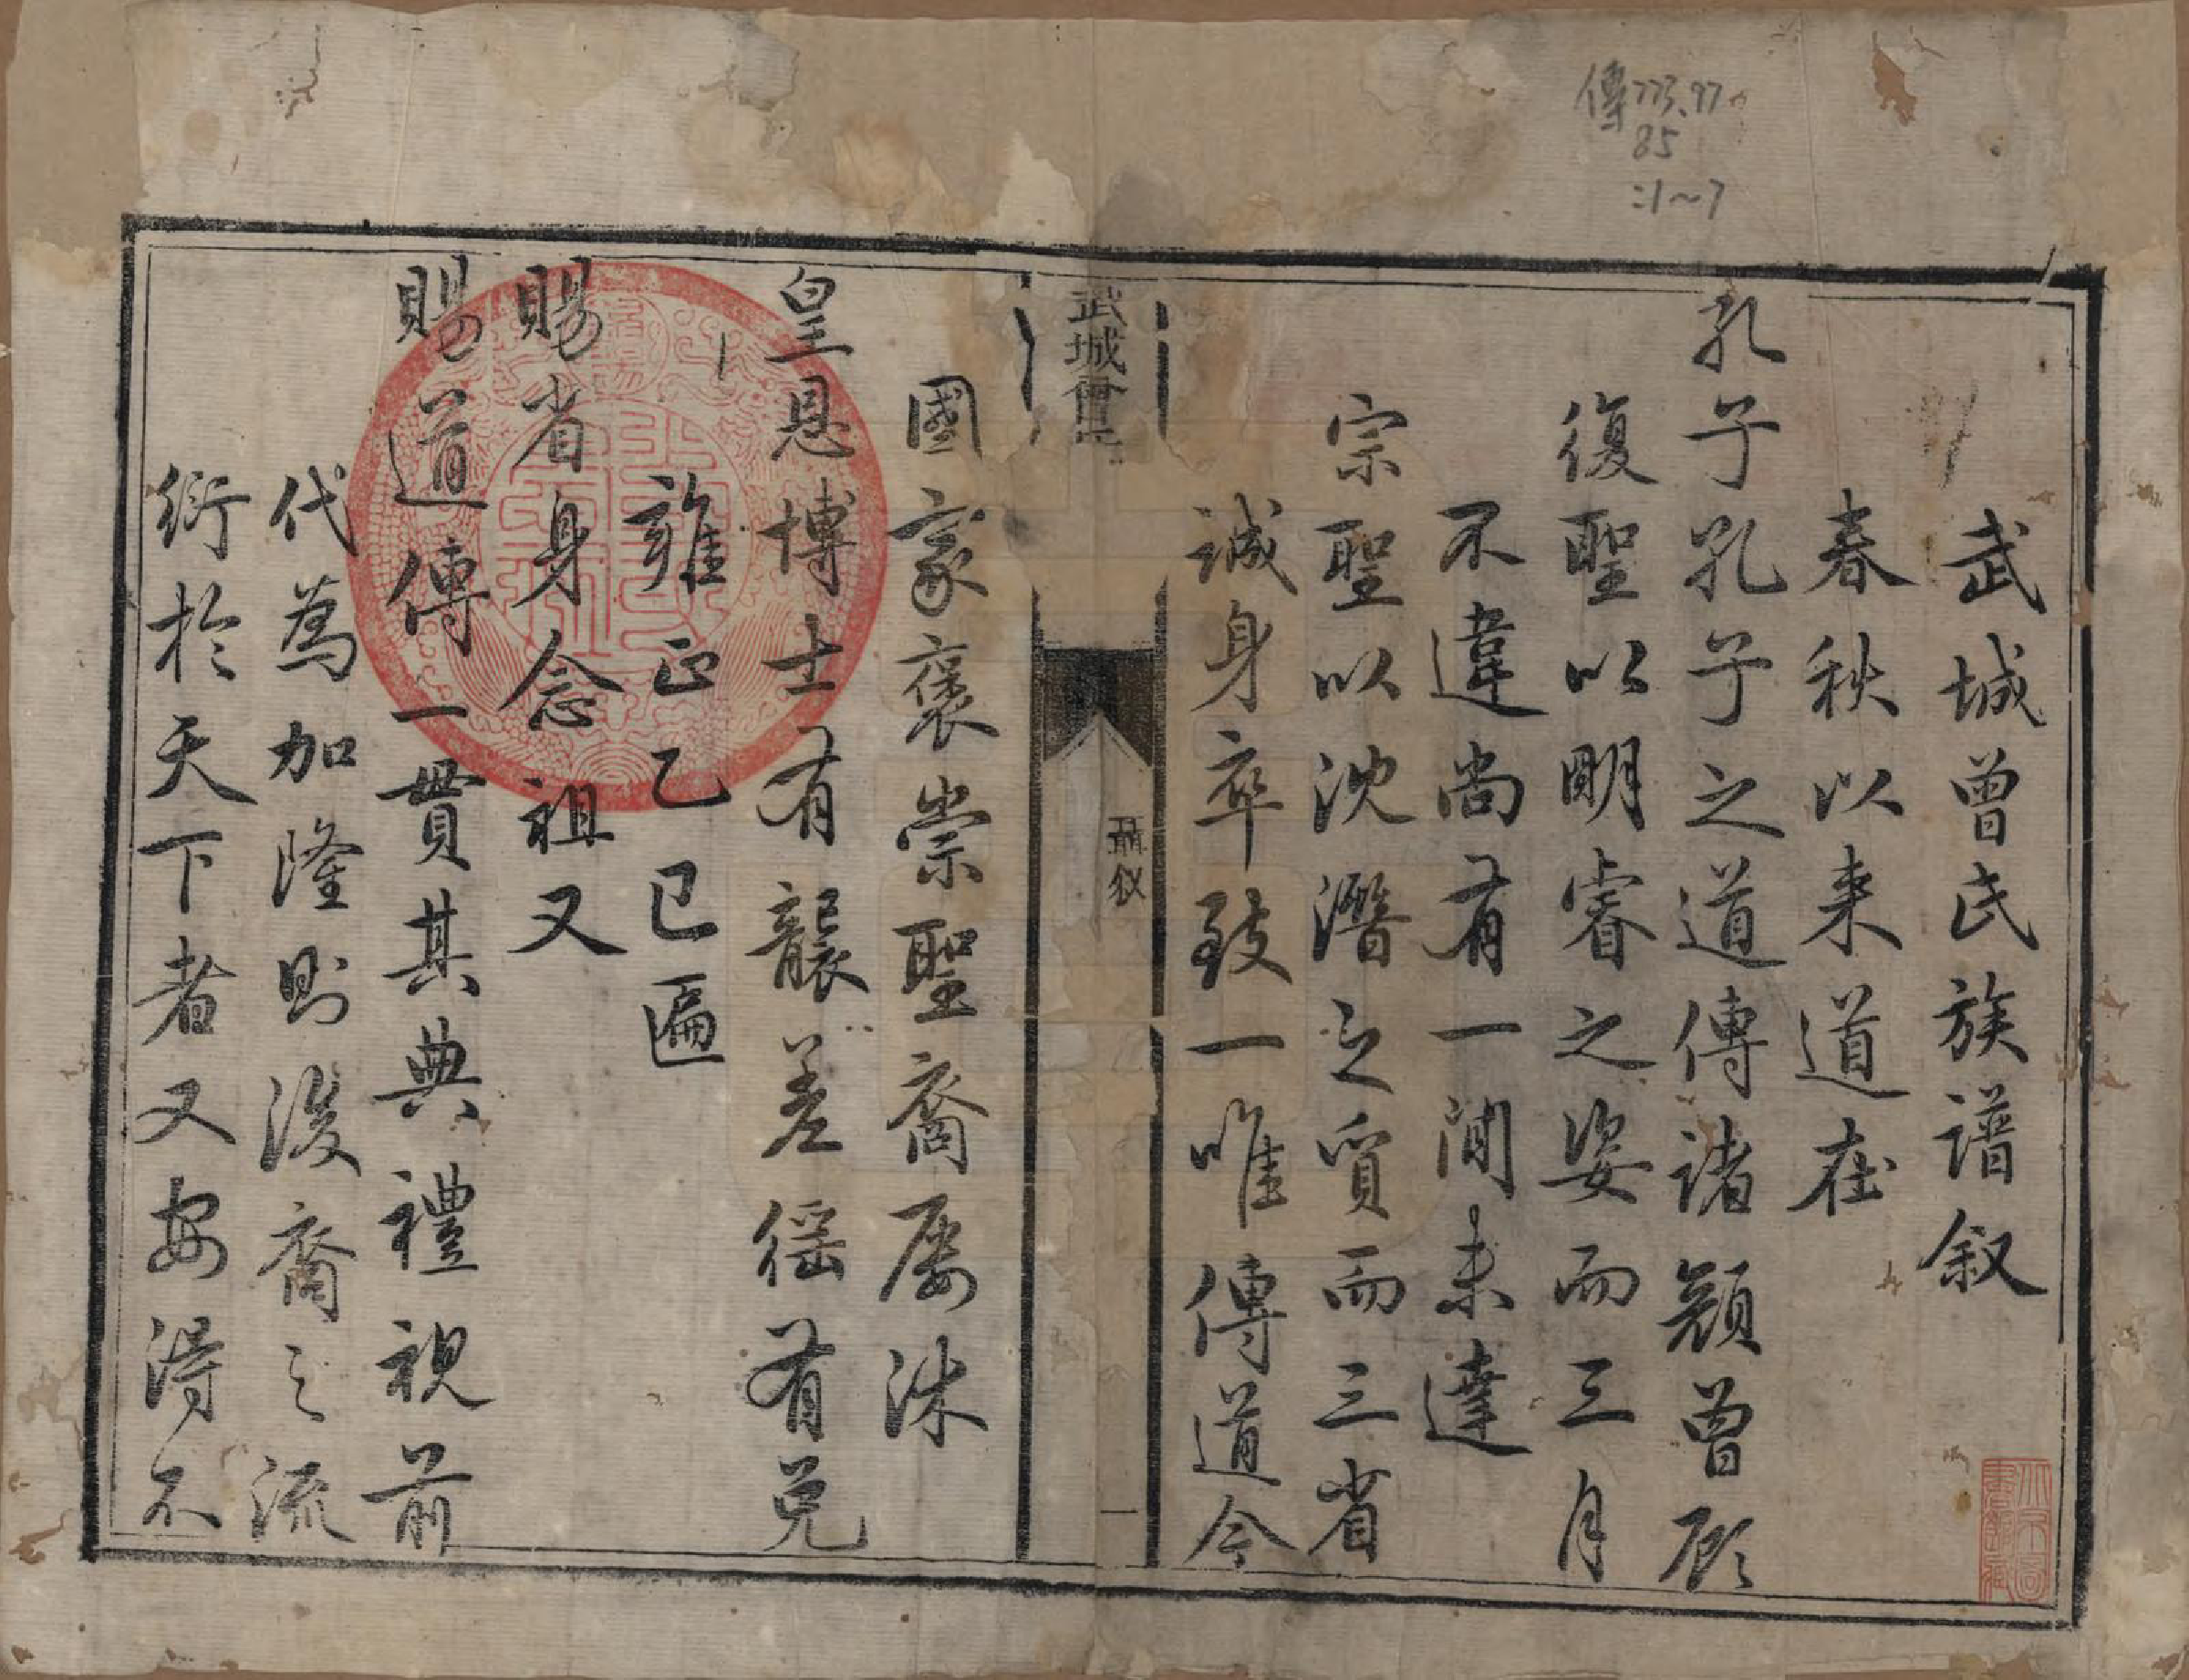 傳773.97
85
:1~7
武城曾氏族譜叙
春秋以来道在
孔子孔子之道傳諸顔曾顧
復聖以明睿之姿而三月
不違尚有一間未達
宗聖以沈潛之質而三省
誠身卒致一唯傳道今
武城曾氏
一
國家褒崇聖裔屡沐
皇恩博士有襲差徭有免
雍正乙巳匾
賜省身念祖又
賜道傳一貫其典禮視前
代為加隆則後裔之流
衍於天下者又安得不